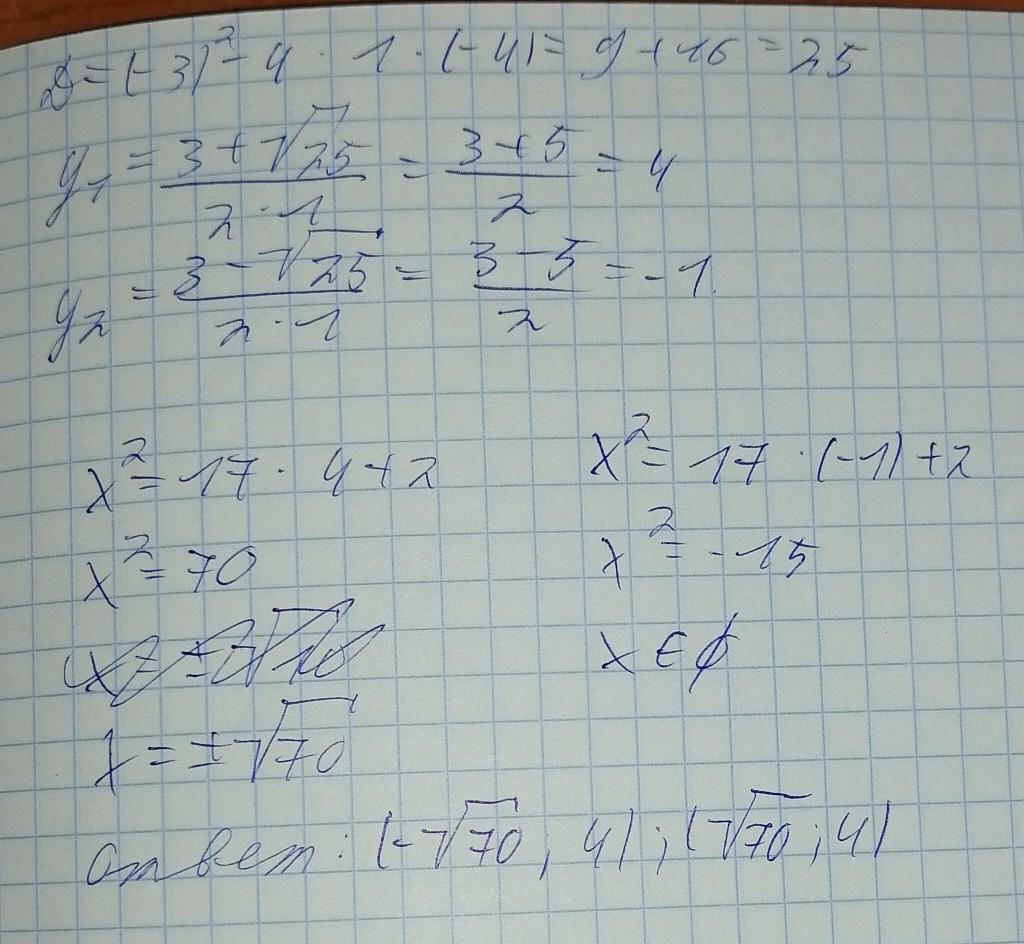 D = (-3)² - 4 · 1 · (-4) = 9 + 16 = 25
y₁ = (3 + √25)/(2 · 1) = (3 + 5)/2 = 4
y₂ = (3 - √25)/(2 · 1) = (3 - 5)/2 = -1.
x² = 17 · 4 + 2
x² = 17 · (-1) + 2
x² = 70
x² = -15
x ∈ ∅
x = ±√70
ответ: (-√70; 4); (√70; 4)